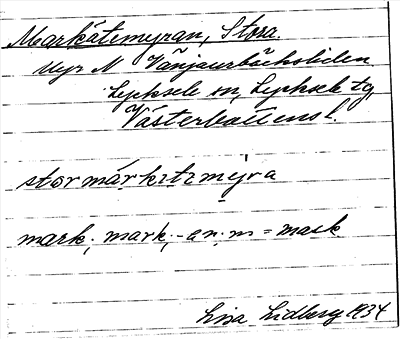 Markätemyran, Stora.
Myr N Vänjaurbäcksliden
Lycksele sn, Lycksele tg,
Västerbottensl.
stormárkɪtɪmyra
mark, mark, -en. m = mask.
Lisa Lidberg 1934